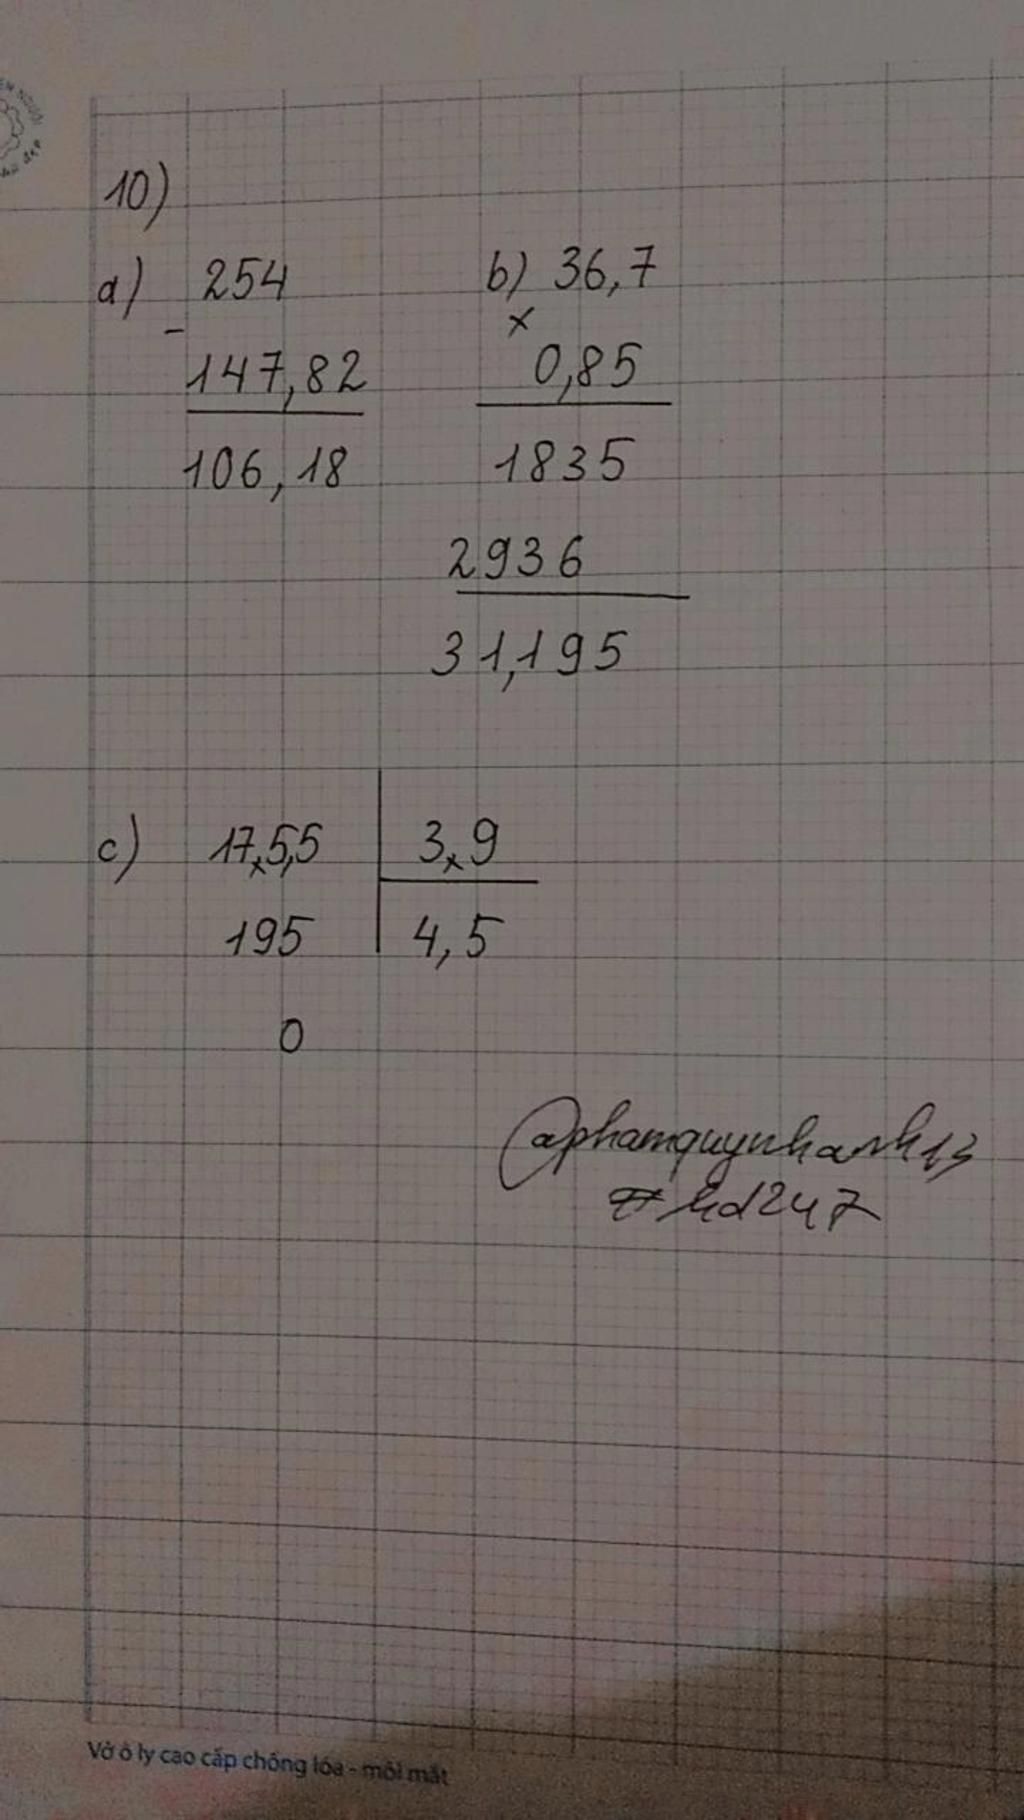 10)
a) 254
-
147,82
106,18
b) 36,7
x
0,85
1835
2936
31,195
c) 17,5,5 3,9
195 4,5
0
@phamquynhanh13
#hd247
Vở ô ly cao cấp chống lóa - mỏi mắt